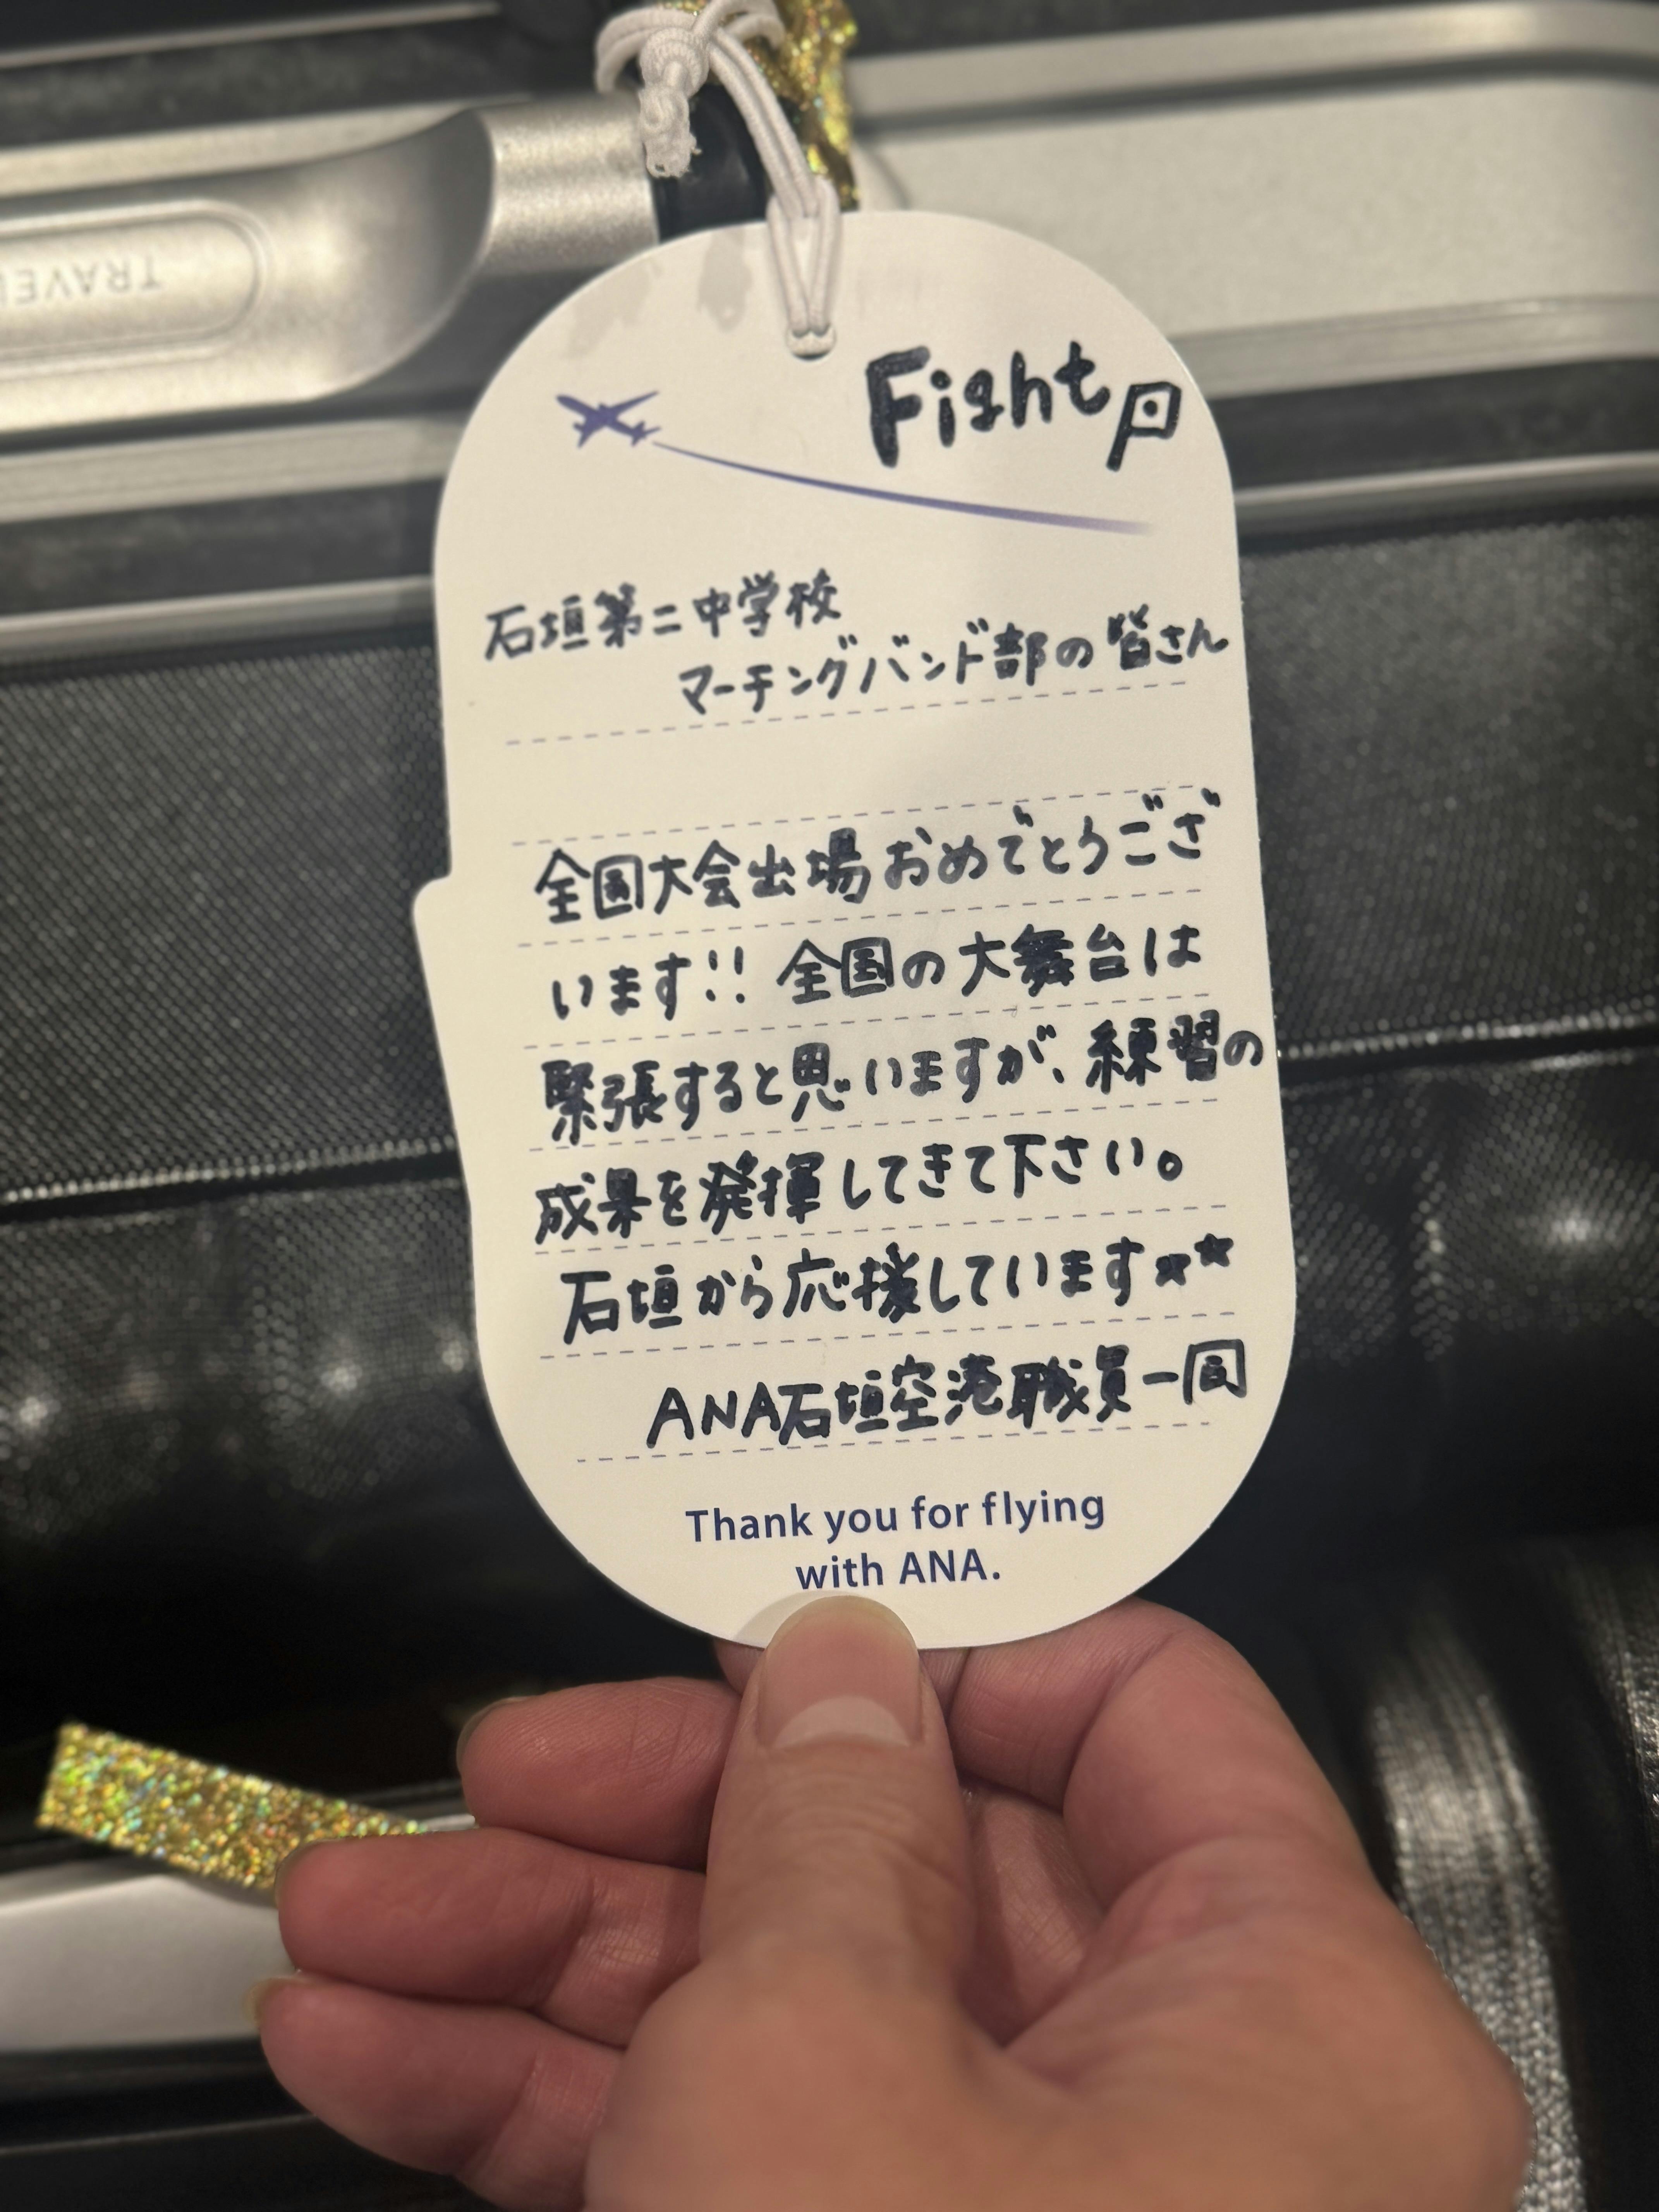 TRAVEL
Fight
石垣第二中学校
マーチングバンド部の皆さん
全国大会出場おめでとうござ
います!! 全国の大舞台は
緊張すると思いますが、練習の
成果を発揮してきて下さい。
石垣から応援しています☆☆
ANA石垣空港職員一同
Thank you for flying
with ANA.